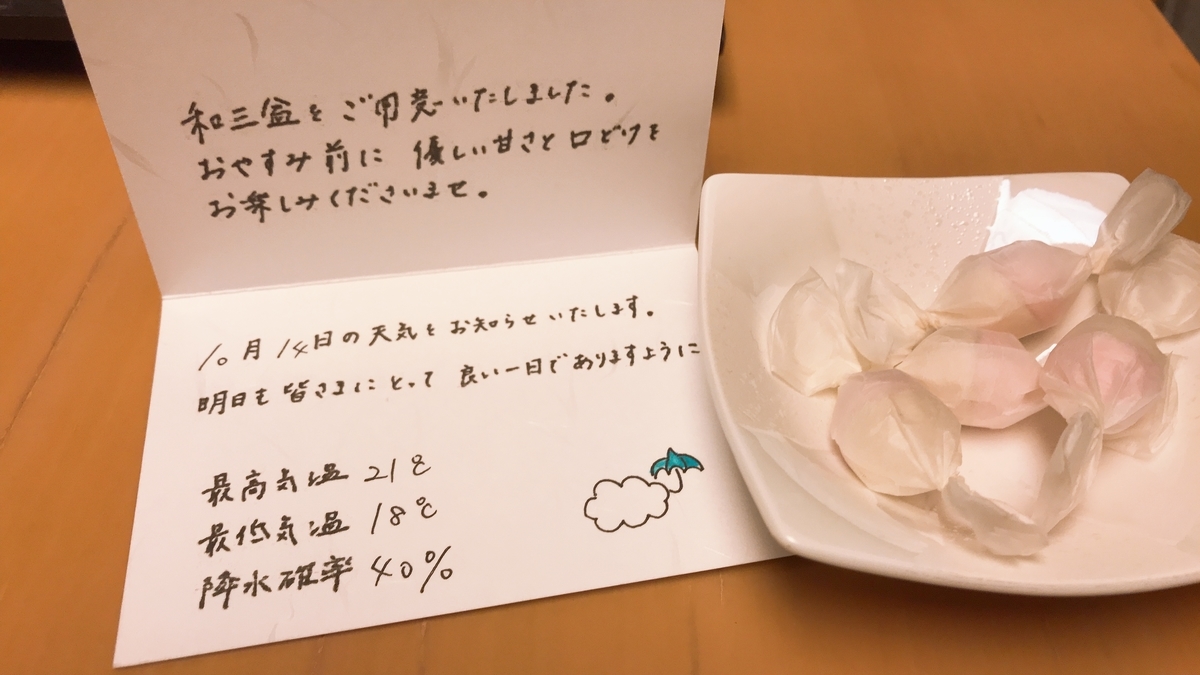 和三盆をご用意いたしました。
おやすみ前に 優しい甘さと口どけを
お楽しみくださいませ。
10月14日の天気をお知らせいたします。
明日も皆さまにとって 良い一日でありますように
最高気温 21℃
最低気温 18℃
降水確率 40%